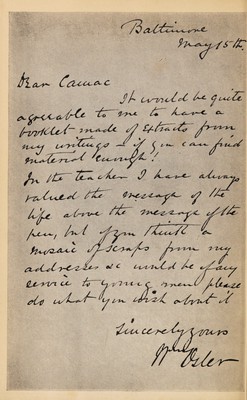 Baltimore
May 15th.
Dear Camac
It would be quite
agreeable to me to have a
booklet made of extracts from
my writings - if you can find
material enough!
In the teacher I have always
valued the message of the
life above the message of the
pen, but if you think a
mosaic of scraps from my
addresses &c would be of any
service to young men please
do what you wish about it
Sincerely yours
Wm Osler